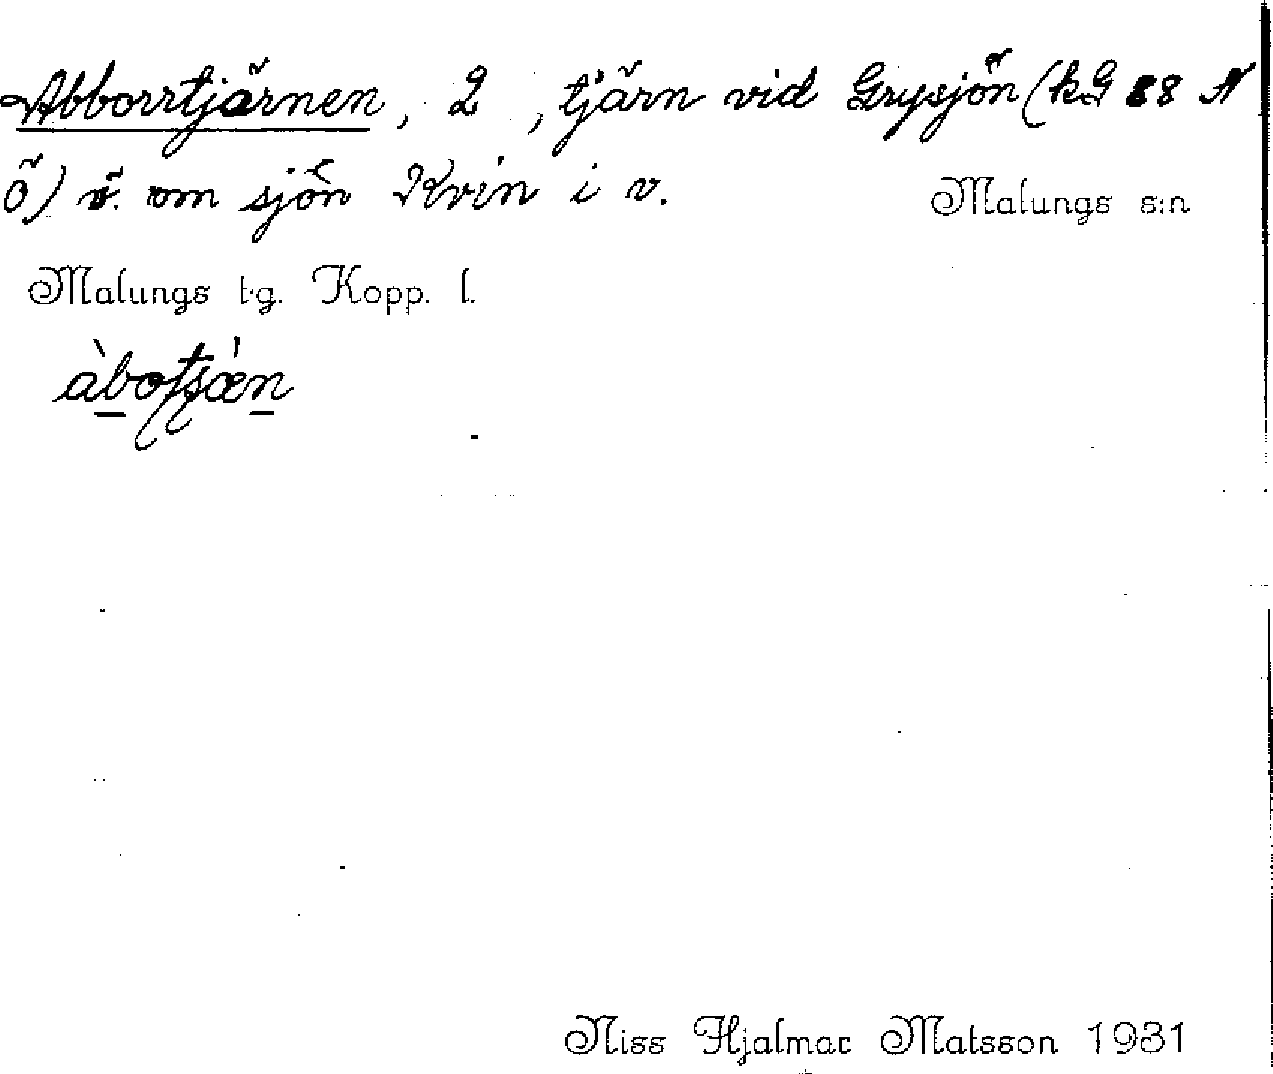 Abborrtjärnen, 2, tjärn vid Grysjön (kG 88 N
Ö) v. om sjön Kvin i v. Malungs s:n
Malungs tg. Kopp. l.
àbotsǽn
Niss Hjalmar Matsson 1931